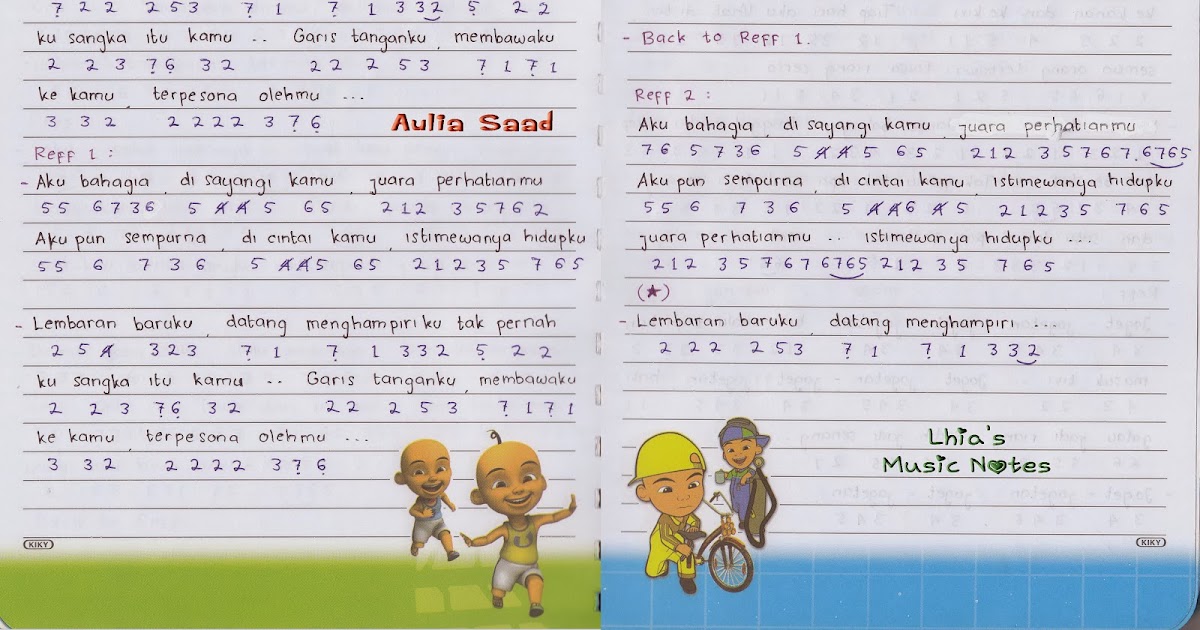 7̣ 2 2 2 5 3 7̣ 1 7̣ 1 3 3 2 5̣ 2 2
ku sangka itu kamu .. Garis tanganku, membawaku
2 2 3 7̣ 6̣ 3 2 2 2 2 5 3 7̣ 1 7̣ 1
ke kamu, terpesona olehmu ...
3 3 2 2 2 2 2 3 7̣ 6̣
Aulia Saad
Reff 1 :
- Aku bahagia, di sayangi kamu, juara perhatianmu
5 5 6 7 3 6 5 4̸ 4̸ 5 6 5 2 1 2 3 5 7 6 2
Aku pun sempurna, di cintai kamu, istimewanya hidupku
5 5 6 7 3 6 5 4̸ 4̸ 5 6 5 2 1 2 3 5 7 6 5
- Lembaran baruku, datang menghampiri ku tak pernah
2 5 4̸ 3 2 3 7̣ 1 7̣ 1 3 3 2 5̣ 2 2
ku sangka itu kamu .. Garis tanganku, membawaku
2 2 3 7̣ 6̣ 3 2 2 2 2 5 3 7̣ 1 7̣ 1
ke kamu, terpesona olehmu ...
3 3 2 2 2 2 2 3 7̣ 6̣
KIKY
- Back to Reff 1.
Reff 2 :
Aku bahagia, di sayangi kamu, juara perhatianmu
7 6 5 7 3 6 5 4̸ 4̸ 5 6 5 2 1 2 3 5 7 6 7 . 6 7 6 5
Aku pun sempurna, di cintai kamu, istimewanya hidupku
5 5 6 7 3 6 5 4̸ 4̸ 6 4̸ 5 2 1 2 3 5 7 6 5
juara perhatianmu .. istimewanya hidupku ...
2 1 2 3 5 7 6 7 6 7 6 5 2 1 2 3 5 7 6 5
(★)
- Lembaran baruku, datang menghampiri ...
2 2 2 2 5 3 7̣ 1 7̣ 1 3 3 2
Lhia's
Music Notes
KIKY